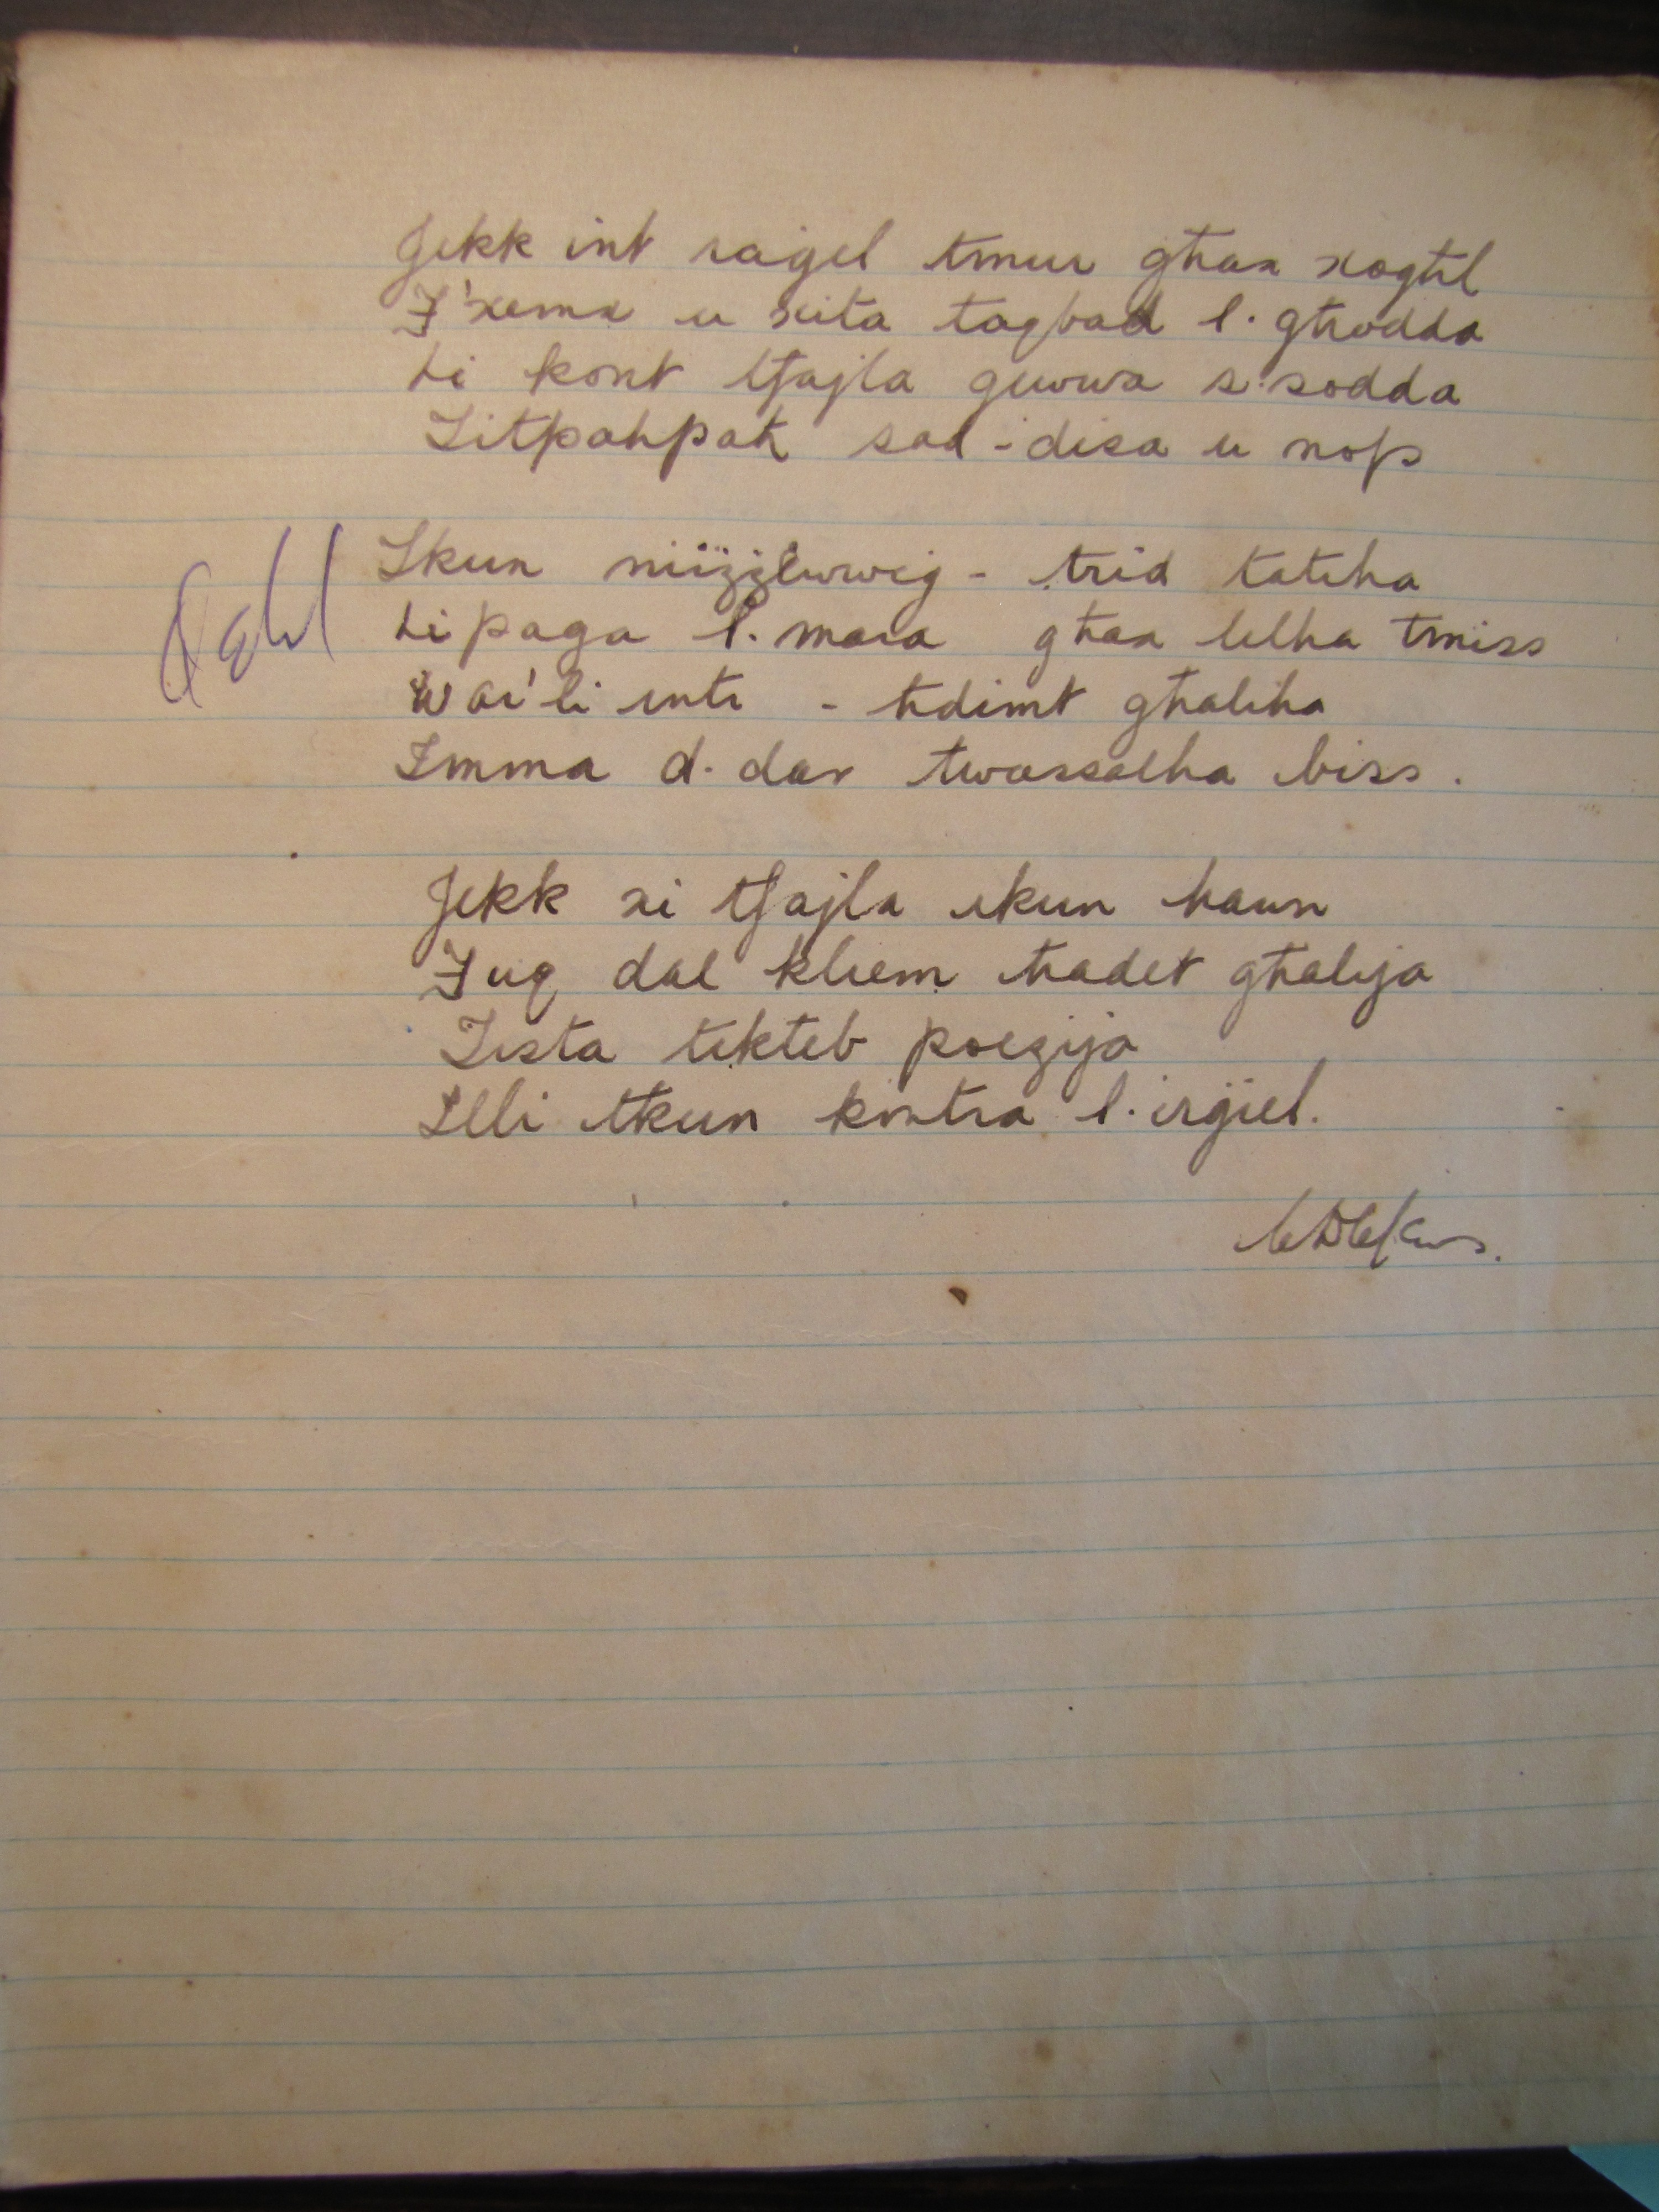 Jekk int raġel tmur għax-xogħl
F'xemx u xita taqbad l-għodda
Li kont tfajla ġuwwa s-sodda
Titpaħpaħ sad-disa u nofs
Tkun miżżewweġ - trid tatiha
Li paga l-mara għax lilha tmiss
Wara li inti - ħdimt għaliha
Imma d-dar twassalha biss.
Jekk xi tfajla ikun hawn
Fuq dal kliem ħadet għalija
Tista tikteb poezija
Illi tkun kontra l-irġiel.